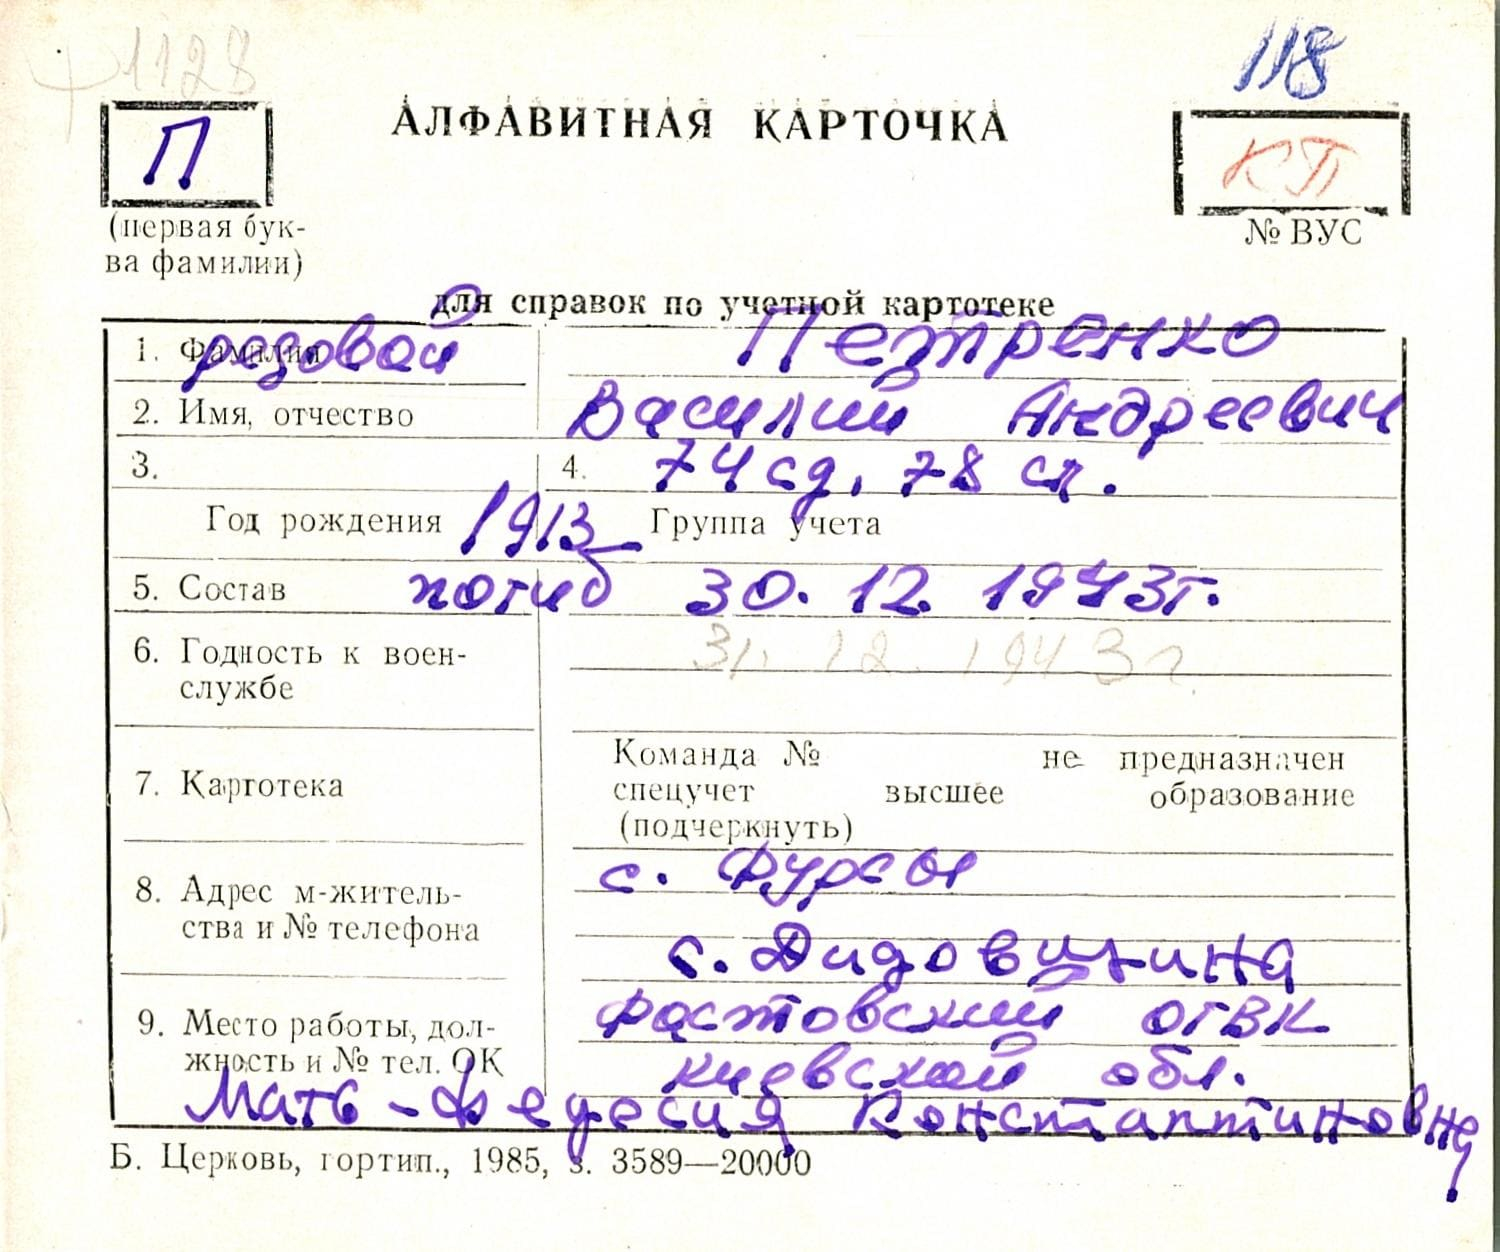 1128
118
П
АЛФАВИТНАЯ КАРТОЧКА
КП
(первая бук-
ва фамилии)
№ ВУС
для справок по учетной картотеке
1. Фамилия рядовой Петренко
2. Имя, отчество Василий Андреевич
3. 4. 74 сд, 78 сп.
Год рождения 1913 Группа учета
5. Состав погиб 30. 12. 1943г.
31. 12. 1943г.
6. Годность к воен-
службе
7. Картотека
Команда № не предназначен
спецучет высшее образование
(подчеркнуть)
8. Адрес м-житель-
ства и № телефона
с. Фурсы
с. Дидовщина
9. Место работы, дол-
жность и № тел. ОК
Фастовский ОГВК
Киевской обл.
Мать - Федесия Константиновна
Б. Церковь, гортип., 1985, з. 3589—20000